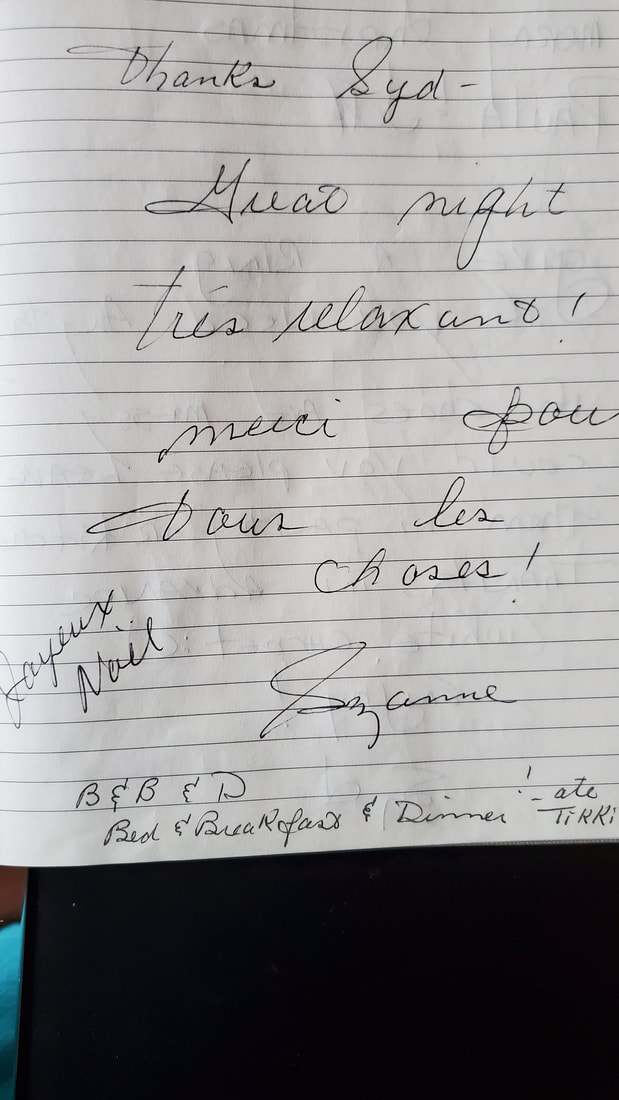 Thanks Syd-
Great night
très relaxant!
merci pou
tous les
choses!
Joyeux
Noël
Suzanne
B & B & D
Bed & Breakfast & Dinner! - ate
Tikki